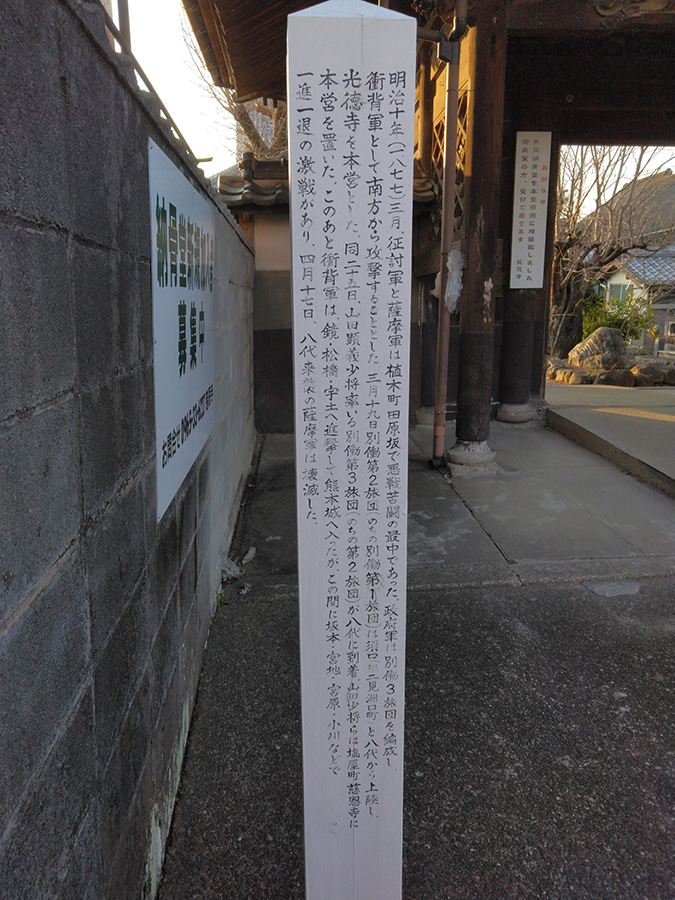 明治十年(一八七七)三月、征討軍と薩摩軍は植木町田原坂で悪戦苦闘の最中であった。政府軍は別働3旅団を編成し、
衝背軍として南方から攻撃することとした 三月十九日別働第2旅団(のちの別働第1旅団)は須口(二見洲口町)と八代から上陸し、
光徳寺を本営とした。同二十五日、山田顕義少将率いる別働第3旅団(のちの第2旅団)が八代に到着。山田少将らは塩屋町慈恩寺に
本営を置いた。このあと衝背軍は、鏡・松橋・宇土へ進撃して熊本城へ入ったが、この間に坂本・宮地・宮原・小川などで
一進一退の激戦があり、四月十七日、八代来襲の薩摩軍は壊滅した。
お知らせ
納骨堂
募集中
お問合せ